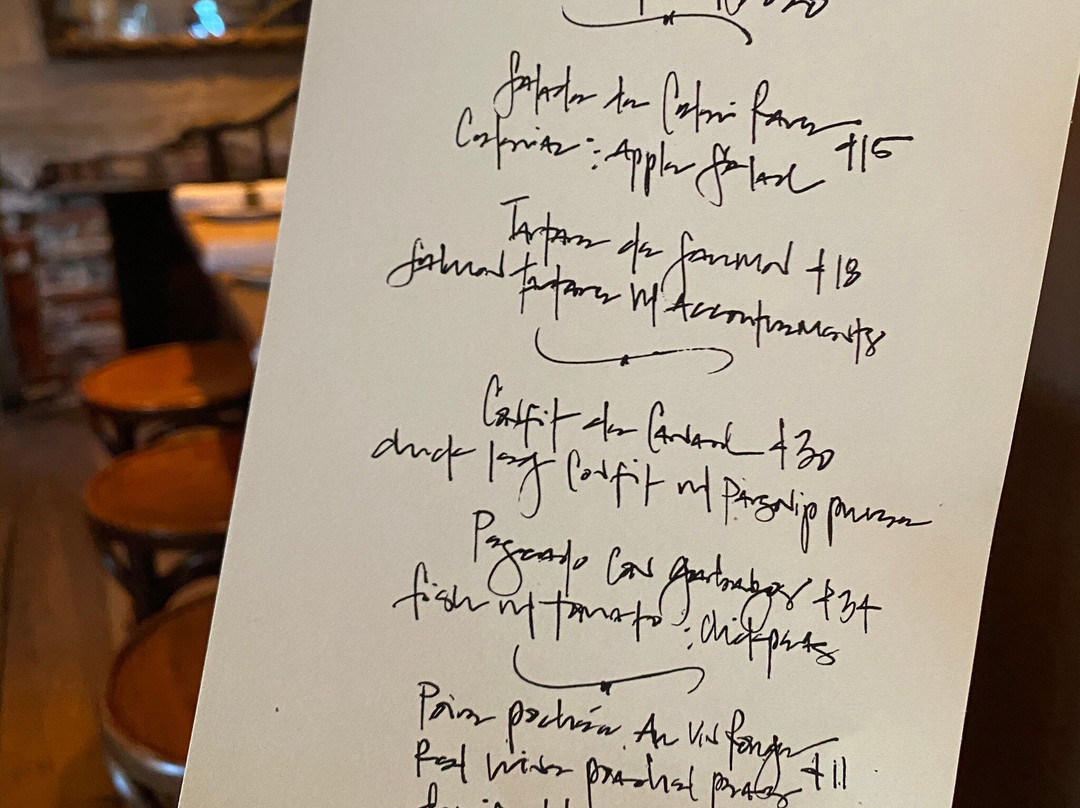 Salade de Celeri Rave +15
Celeriac : Apple Salad
Tartare de Saumon +18
Salmon tartare w/ Accoutrements
Confit de Canard +30
duck leg Confit w/ Parsnip puree
Pescado Con garbanzos +34
fish w/ tomato : chickpeas
Poire pochée Au Vin Rouge
Red wine poached pears +11